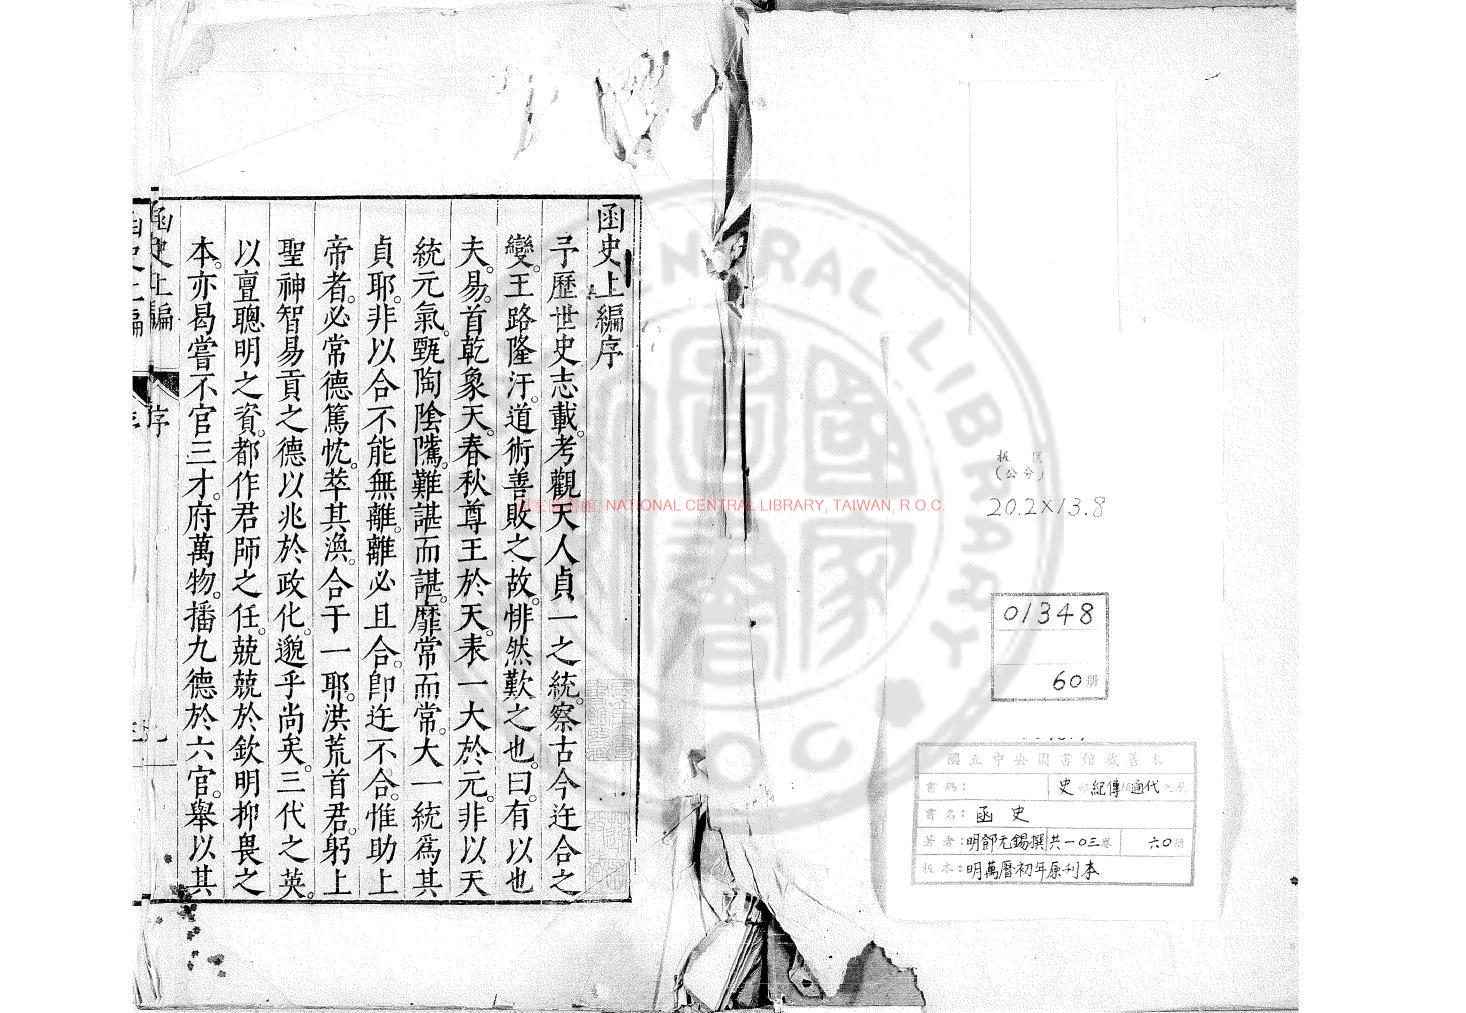 板 匡
(公分)
20.2×13.8
01348
60册
國立中央圖書館藏善本
書碼：
史部紀傳類通代之屬
書名：函史
著者：明鄧元錫撰 共一0三卷 六0册
板本：明萬曆初年原刊本
國家圖書館, NATIONAL CENTRAL LIBRARY, TAIWAN, R.O.C.
CENTRAL LIBRARY
R.O.C
函史上編序
予歷世史志載。考觀天人貞一之統。察古今迕合之
變。王路隆汙。道術善敗之故。悱然歎之也。曰。有以也
夫。易。首乾象天。春秋尊王於天。表一大於元。非以天
統元氣。甄陶陰隲。難諶而諶。靡常而常。大一統爲其
貞耶。非以合不能無離。離必且合。卽迕不合。惟助上
帝者。必常德篤忱。萃其渙。合于一耶。洪荒首君。躬上
聖神智易貢之德以兆於政化。邈乎尚矣。三代之英。
以亶聰明之資。都作君師之任。兢兢於欽明抑畏之
本。亦曷嘗不官三才。府萬物。播九德於六官。舉以其
函史上編
序